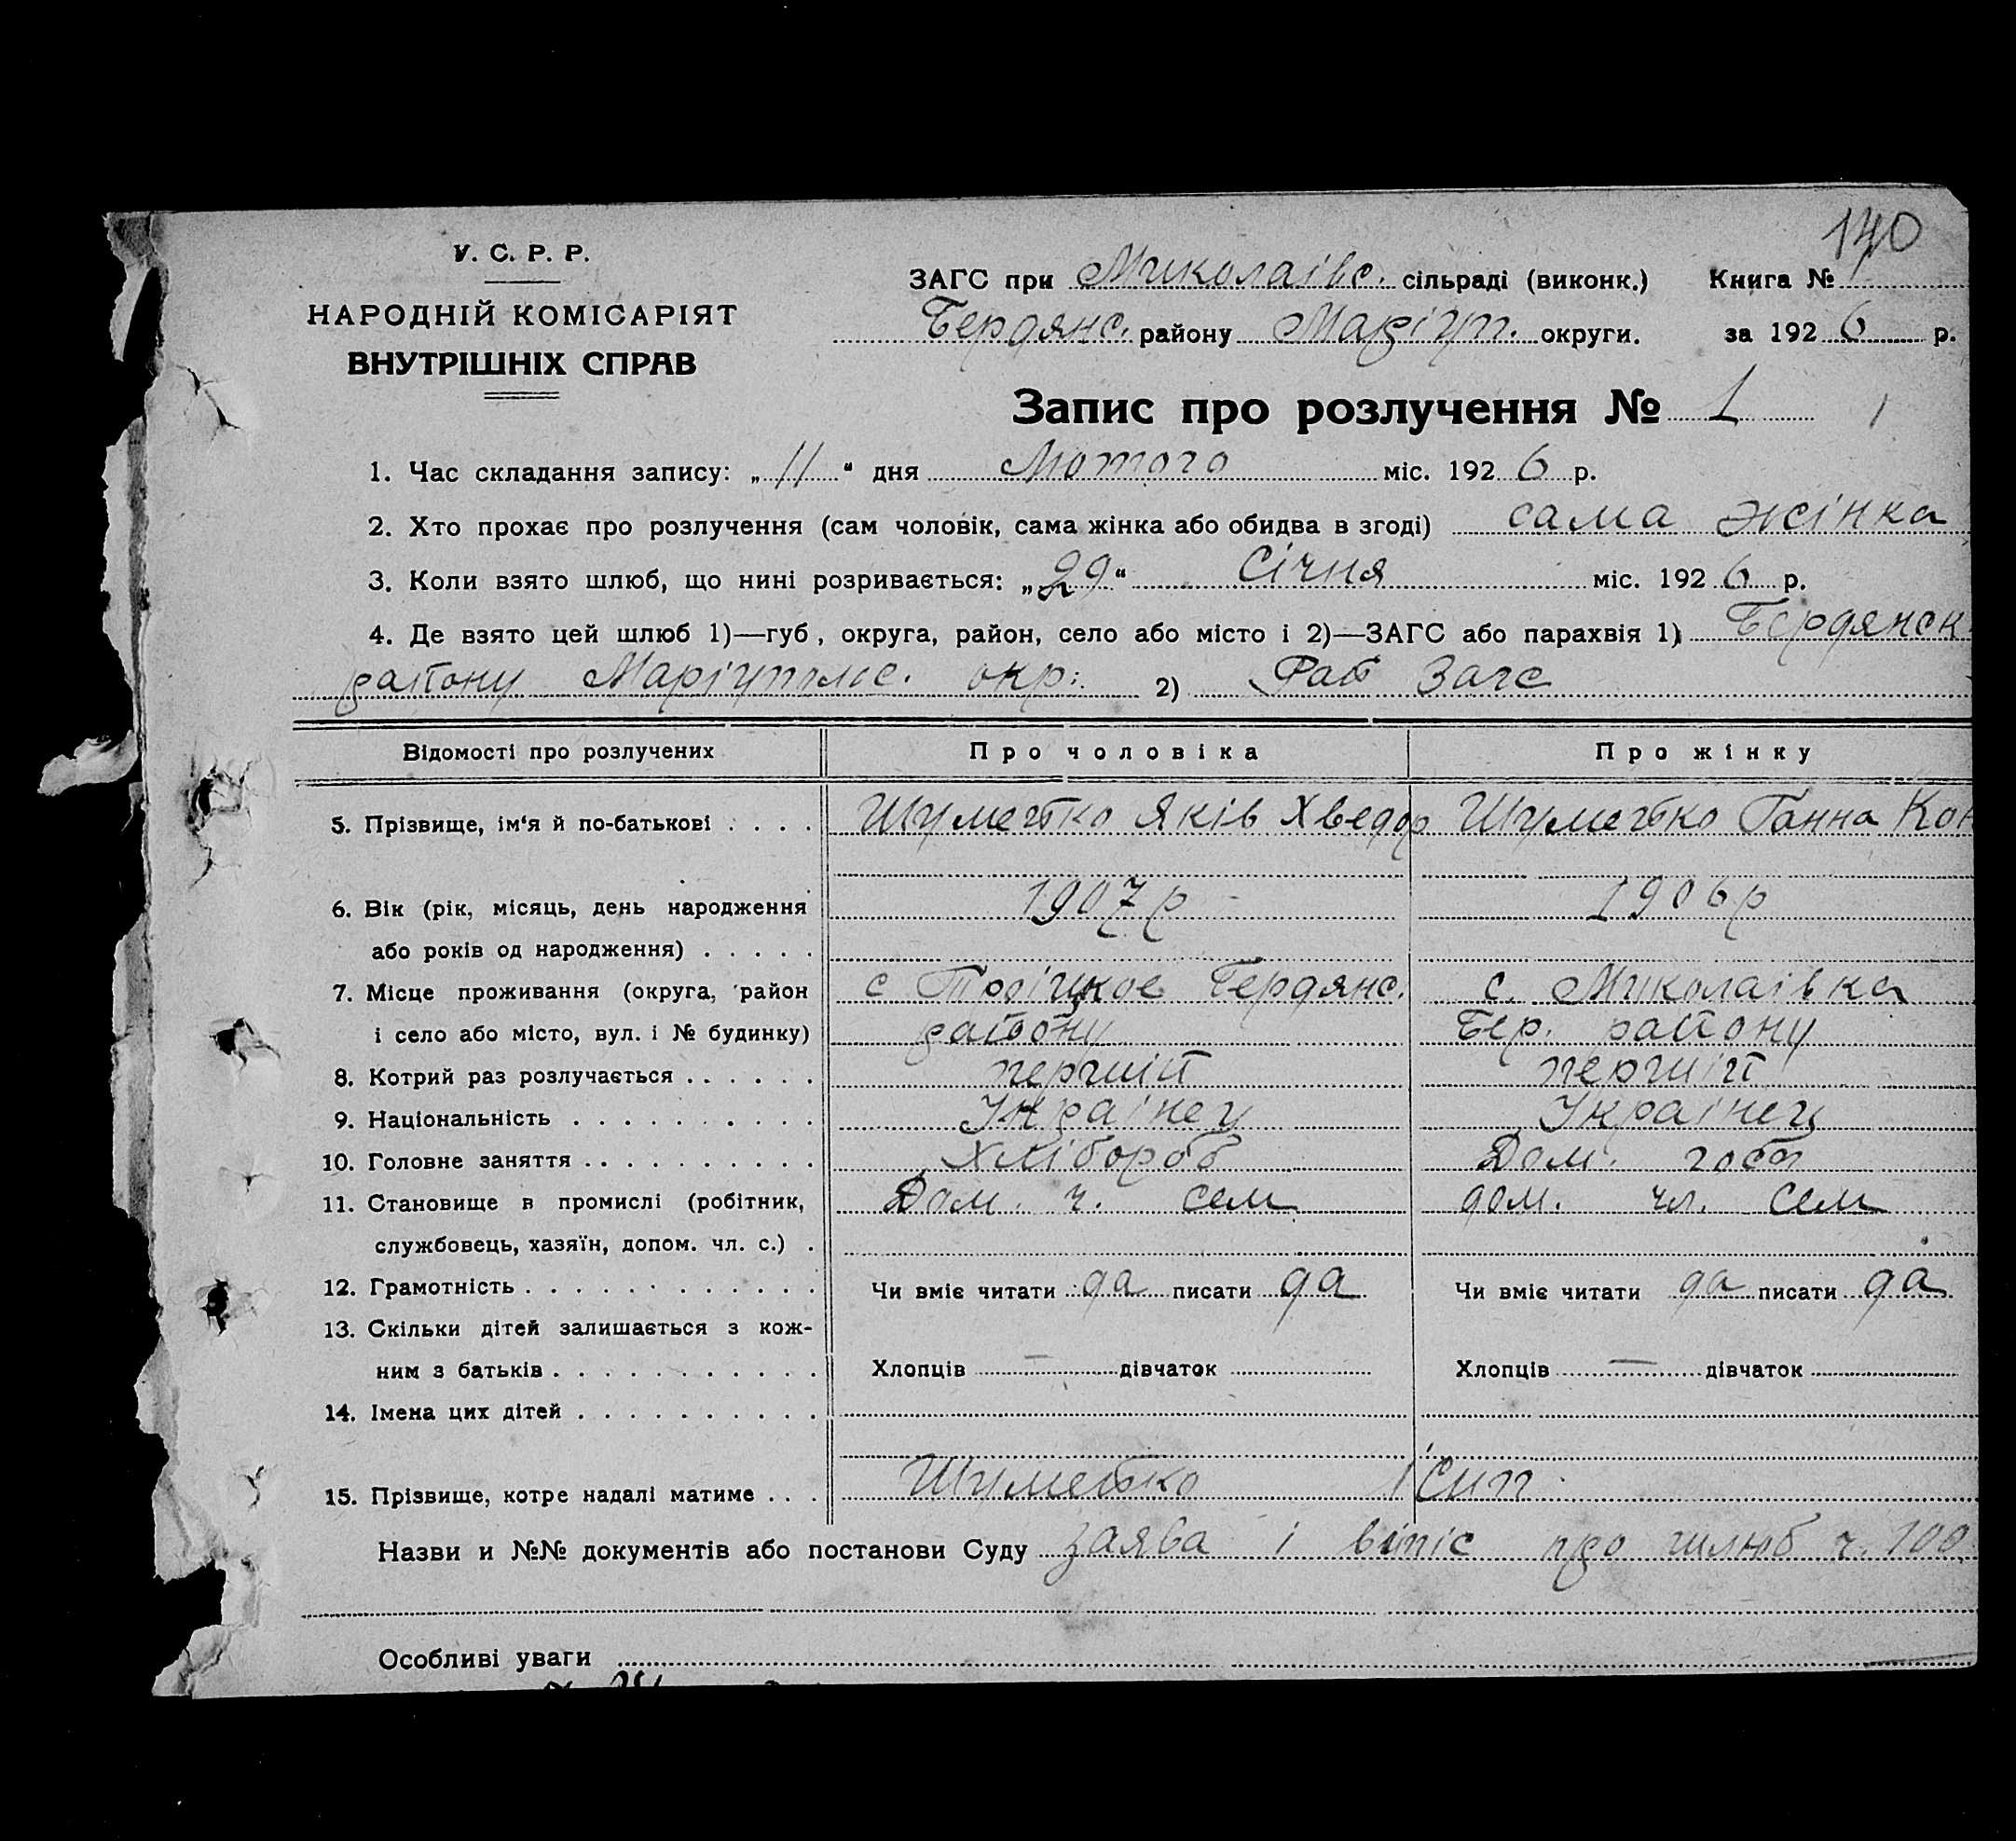 140
У. С. Р. Р.
НАРОДНІЙ КОМІСАРІЯТ
ВНУТРІШНІХ СПРАВ
ЗАГС при Миколаівс. сільраді (виконк.) Книга №
Бердянс. району Маріуп. округи. за 1926 р.
Запис про розлучення № 1
1. Час складання запису: „11“ дня Лютого міс. 1926 р.
2. Хто прохає про розлучення (сам чоловік, сама жінка або обидва в згоді) сама жінка
3. Коли взято шлюб, що нині розривається: „29“ Січня міс. 1926 р.
4. Де взято цей шлюб 1)—губ, округа, район, село або місто і 2)—ЗАГС або парахвія 1) Бердянск
району Маріупольс. окр. 2) Рай Загс
Відомості про розлучених Про чоловіка Про жінку
5. Прізвище, ім‘я й по-батькові . . . . Шумейко Яків Хведор Шумейко Ганна Кон
6. Вік (рік, місяць, день народження 1907 р 1906 р
або років од народження) . . . . .
7. Місце проживання (округа, район с Троіцкое Бердянс. с. Миколаівка
і село або місто, вул. і № будинку) району Бер. району
8. Котрий раз розлучається . . . . . . перший перший
9. Національність . . . . . . . . . . Украінец Украінец
10. Головне заняття . . . . . . . . . . Хлібороб Дом. госп
11. Становище в промислі (робітник, Дом. ч. сем дом. чл. сем
службовець, хазяїн, допом. чл. с.) .
12. Грамотність . . . . . . . . . . . . Чи вміє читати да писати да Чи вміє читати да писати да
13. Скільки дітей залишається з кож-
ним з батьків . . . . . . . . . . . Хлопців — дівчаток Хлопців — дівчаток
14. Імена цих дітей . . . . . . . . . .
15. Прізвище, котре надалі матиме . . . Шумейко
Назви и №№ документів або постанови Суду заява і випіс про шлюб ч. 100
Особливі уваги